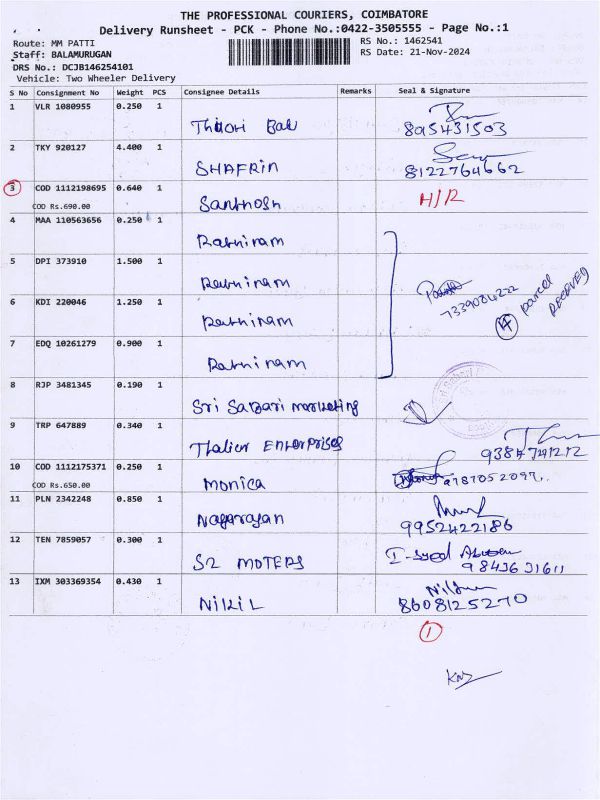 THE PROFESSIONAL COURIERS, COIMBATORE
Delivery Runsheet - PCK - Phone No.:0422-3505555 - Page No.:1
Route: MM PATTI RS No.: 1462541
Staff: BALAMURUGAN RS Date: 21-Nov-2024
DRS No.: DCJB146254101
Vehicle: Two Wheeler Delivery
S No Consignment No Weight PCS Consignee Details Remarks Seal & Signature
1 VLR 1080955 0.250 1
895431503
2 TKY 920127 4.400 1 SHAFRIN
8122764662
3 COD 1112198695 0.640 1 Santhosh H/R
COD Rs.690.00
4 MAA 110563656 0.250 1 Rathinam
5 DPI 373910 1.500 1 Rathinam
7339084222
6 KDI 220046 1.250 1 Rathinam
4 parcel RECEIVED
7 EDQ 10261279 0.900 1 Rathinam
8 RJP 3481345 0.190 1 Sri Sabari marketing
9 TRP 647889 0.340 1 Enterprises
9384741212
10 COD 1112175371 0.250 1 monica 9787052097..
COD Rs.650.00
11 PLN 2342248 0.850 1 Nagarajan
9952422186
12 TEN 7859057 0.300 1 S2 MOTERS I-syed
9843631611
13 IXM 303369354 0.430 1 Nikil
8608125270
1